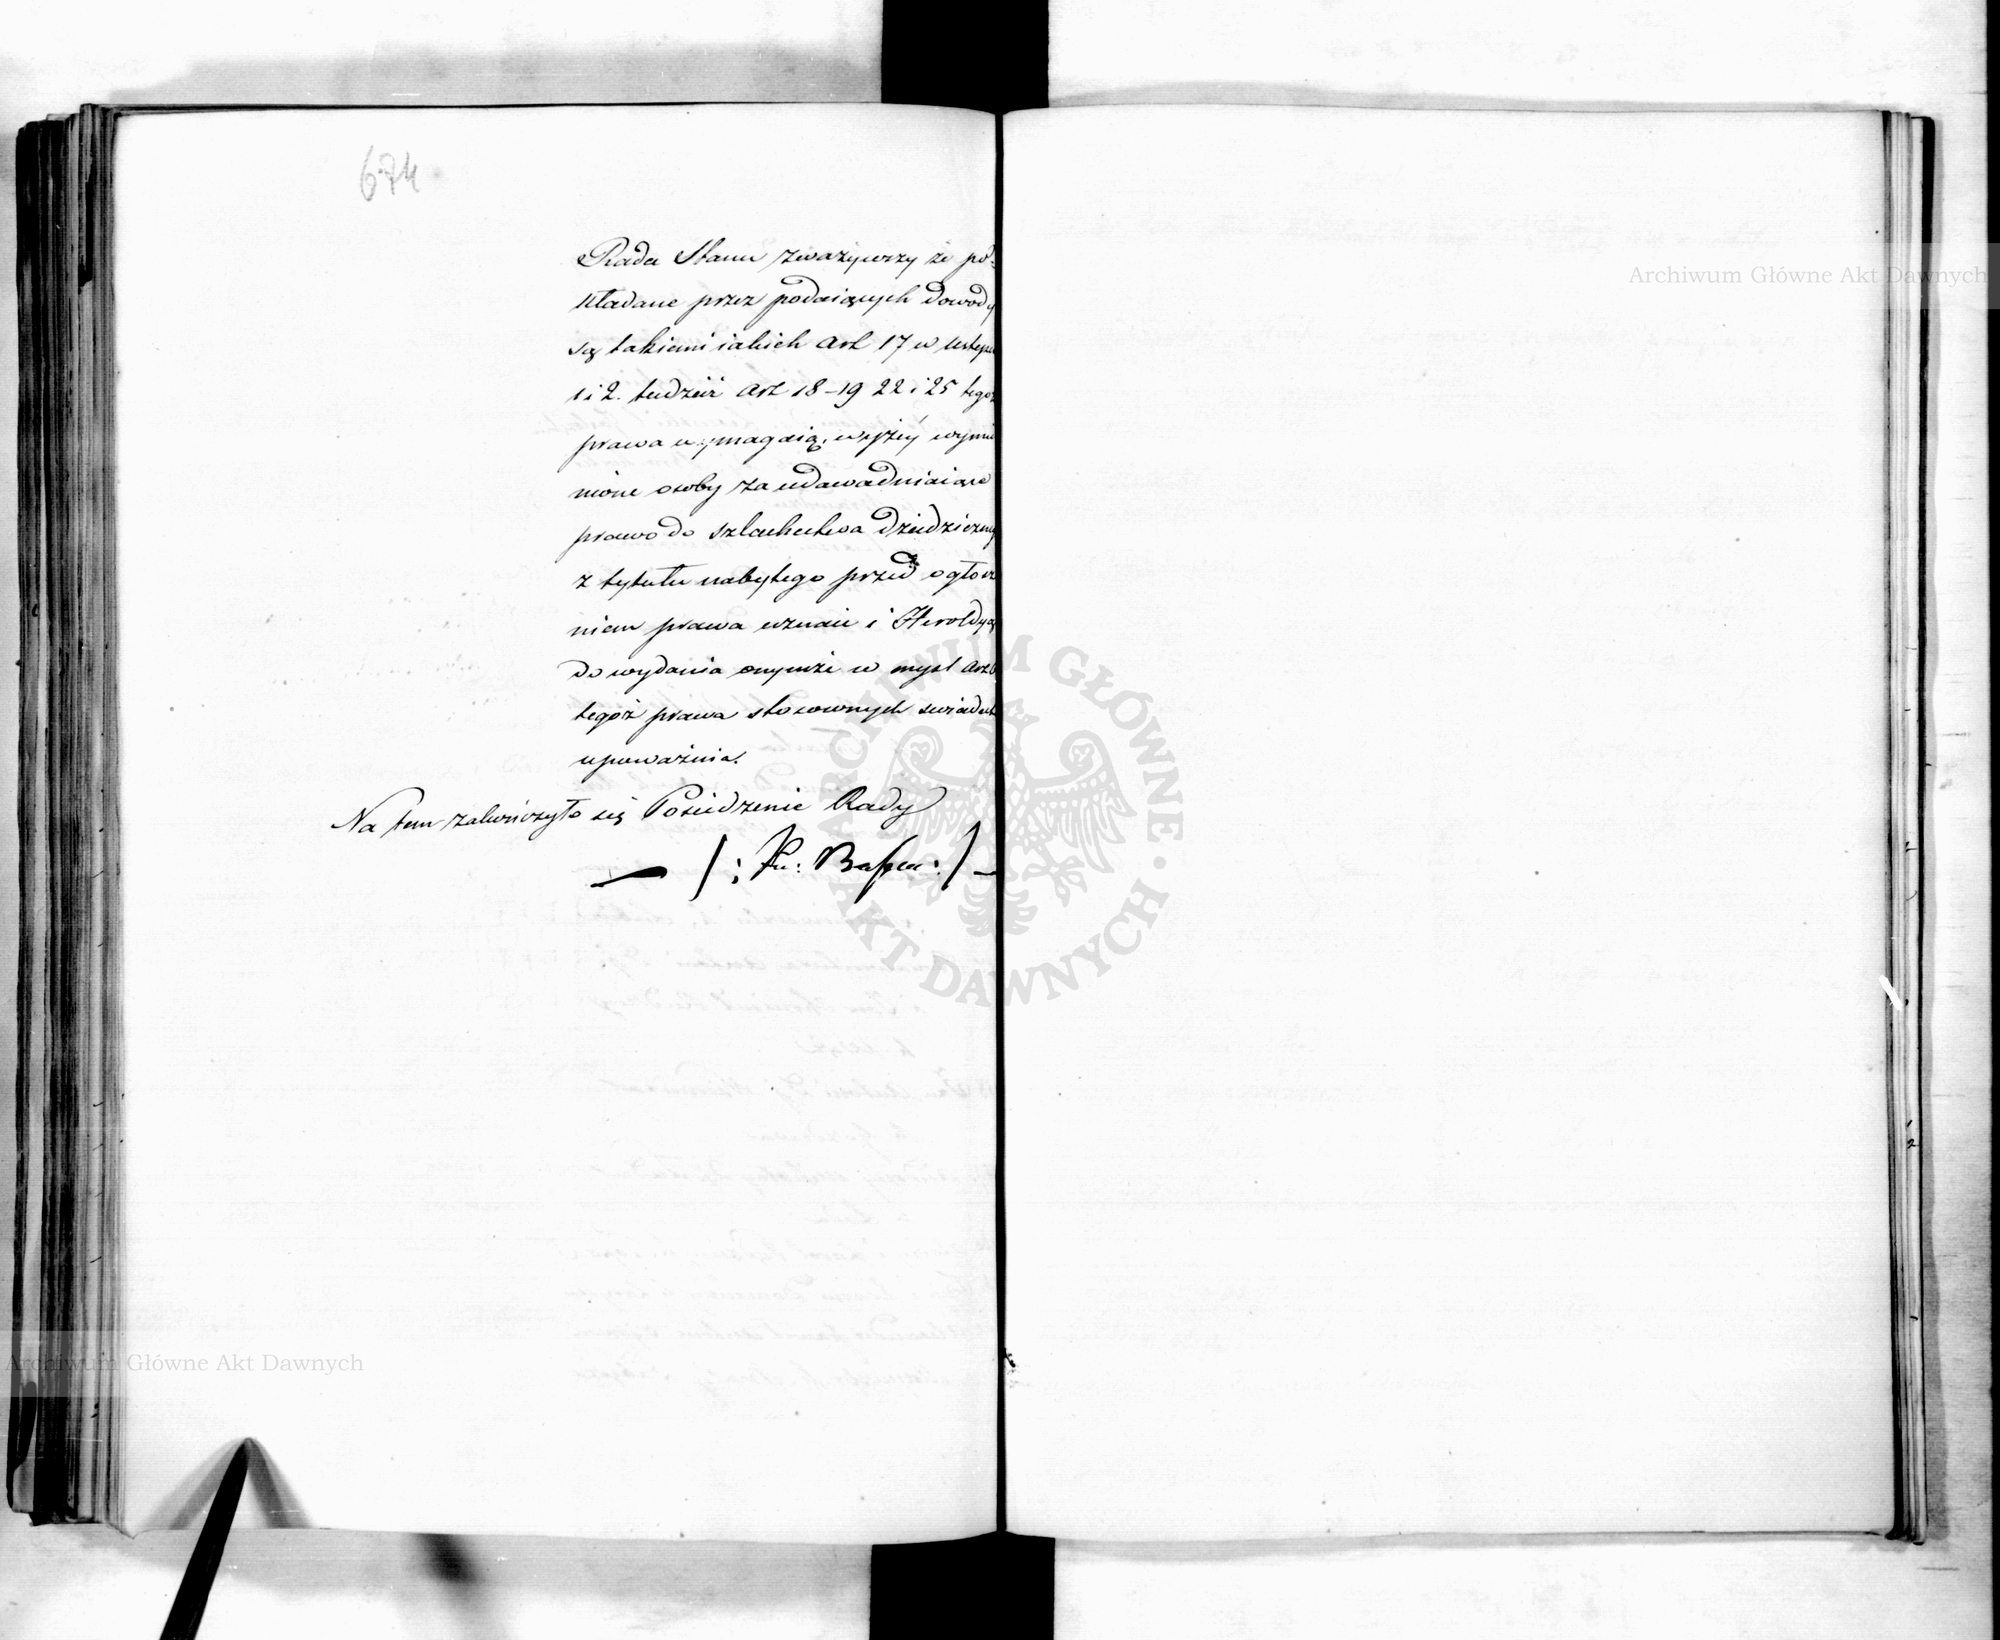 674
Rada Stanu zważywszy że po-
kładane przez podaiących dowody
są takiemi iakich Art 17 w ustępie
1 i 2. tudzież Art 18-19 22 i 25 tegoż
prawa wymagaią, wyżéy wymie
nione osoby za udawadniaiące
prawo do szlachectwa dziedzicznego
z tytułu nabytego przed ogłosze
niem prawa uznaie i Heroldyą
do wydania onymże w myśl Art
tegoż prawa stosownych świadectw
upoważnia.
Na tem zakończyło się Posiedzenie Rady
Archiwum Główne Akt Dawnych
ARCHIWUM GŁÓWNE AKT DAWNYCH
Archiwum Główne Akt Dawnych